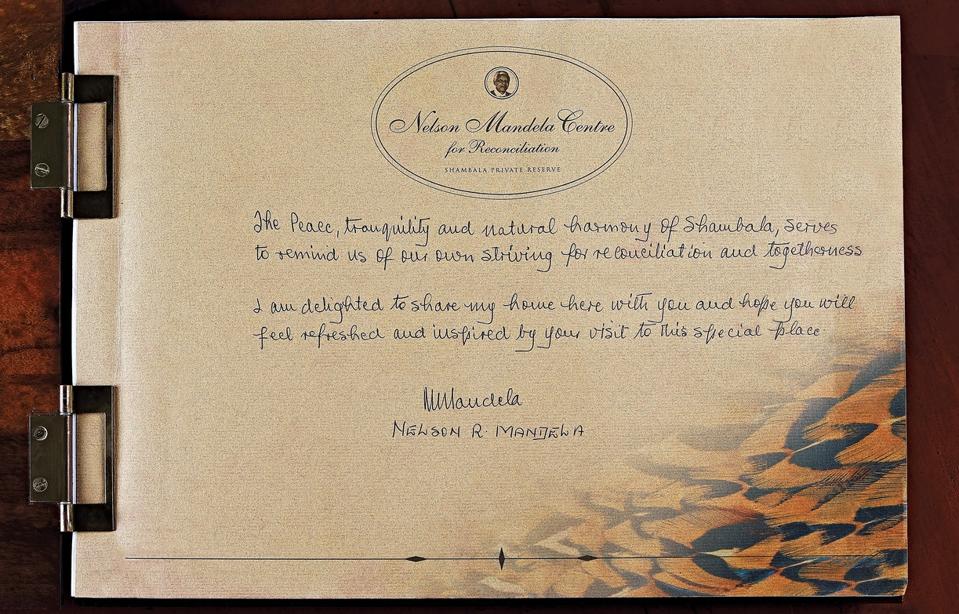 Nelson Mandela Centre
for Reconciliation
SHAMBALA PRIVATE RESERVE
The Peace, tranquility and natural harmony of Shambala, serves
to remind us of our own striving for reconciliation and togetherness
I am delighted to share my home here with you and hope you will
feel refreshed and inspired by your visit to this special place
NMandela
NELSON R. MANDELA